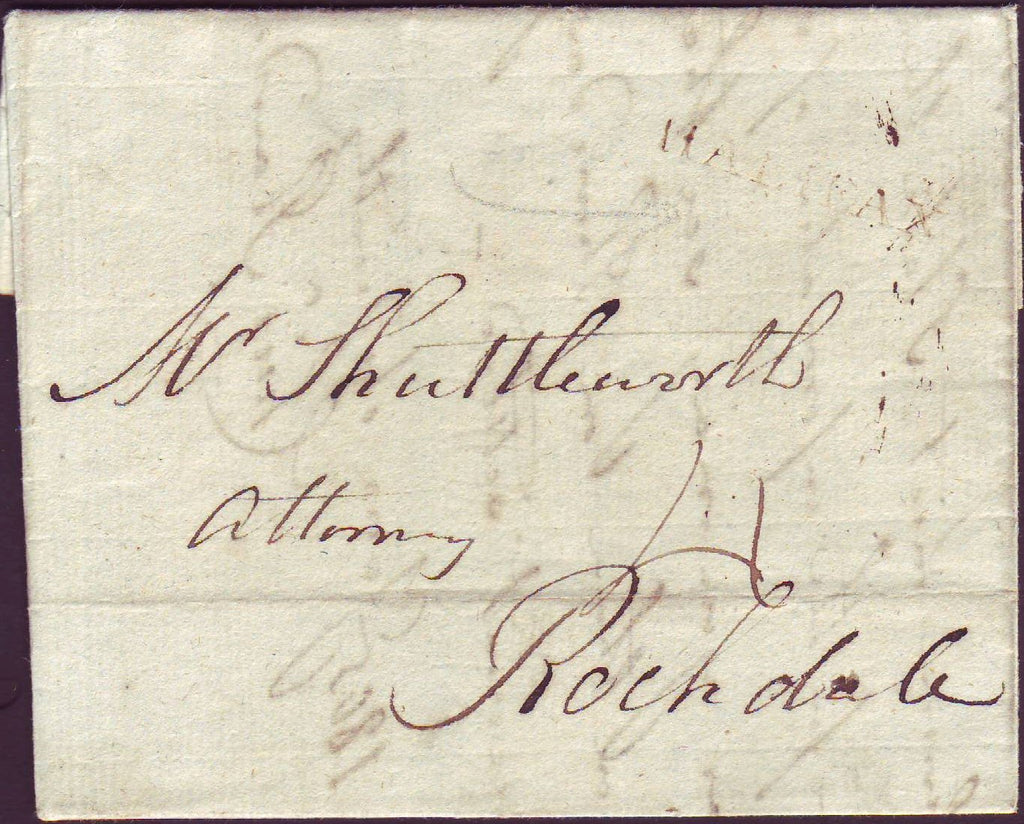 HALIFAX
Mr Shuttleworth
Attorney
4
Rochdale